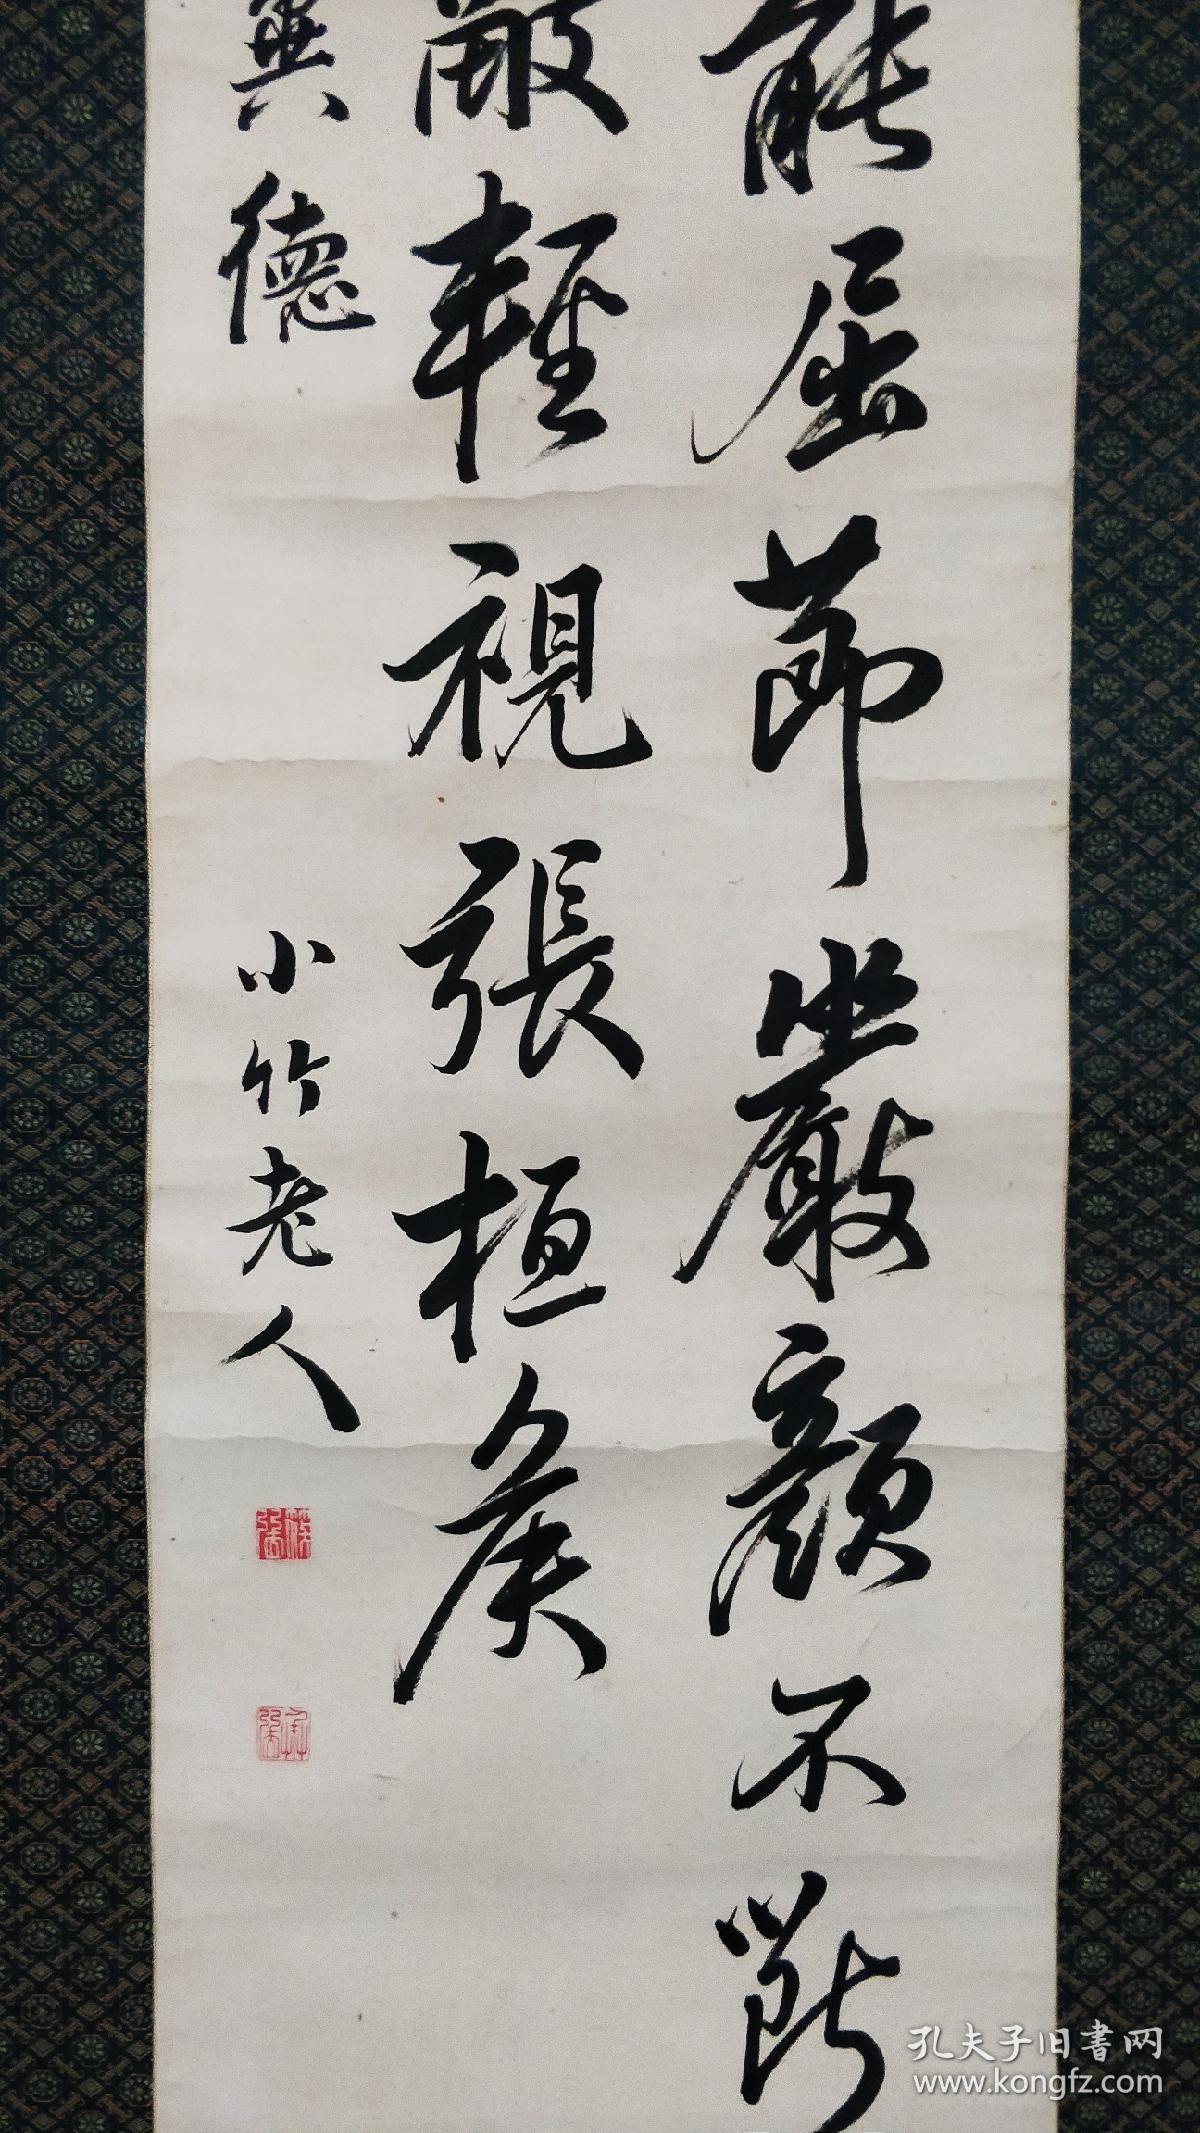 能屈節嚴顏不斷
敵輕視張桓矦
異德
小竹老人
孔夫子旧書网
www.kongfz.com